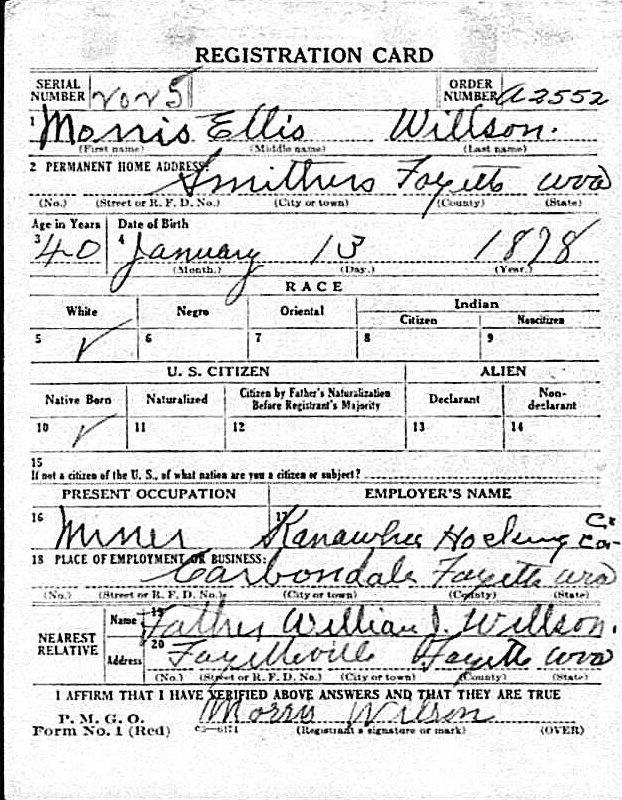 REGISTRATION CARD
SERIAL NUMBER 2025 ORDER NUMBER A2552
1 Morris Ellis Willson.
(First name) (Middle name) (Last name)
2 PERMANENT HOME ADDRESS:
Smithers Fayette WVa
(No.) (Street or R. F. D. No.) (City or town) (County) (State)
Age in Years Date of Birth
3 40 4 January 13 1878
(Month.) (Day.) (Year.)
RACE
White Negro Oriental Indian
Citizen Noncitizen
5 ✓ 6 7 8 9
U. S. CITIZEN ALIEN
Native Born Naturalized Citizen by Father's Naturalization Before Registrant's Majority Declarant Non-declarant
10 ✓ 11 12 13 14
15
If not a citizen of the U. S., of what nation are you a citizen or subject?
PRESENT OCCUPATION EMPLOYER'S NAME
16 Miner 17 Kanawha Hocking C. Co.
18 PLACE OF EMPLOYMENT OR BUSINESS:
Carbondale Fayette WVa
(No.) (Street or R. F. D. No.) (City or town) (County) (State)
NEAREST RELATIVE
Name 19 Father William J. Willson.
Address 20 Fayetteville Fayette WVa
(No.) (Street or R. F. D. No.) (City or town) (County) (State)
I AFFIRM THAT I HAVE VERIFIED ABOVE ANSWERS AND THAT THEY ARE TRUE
P. M. G. O.
Form No. 1 (Red) Morris Wilson
(Registrant's signature or mark) (OVER)